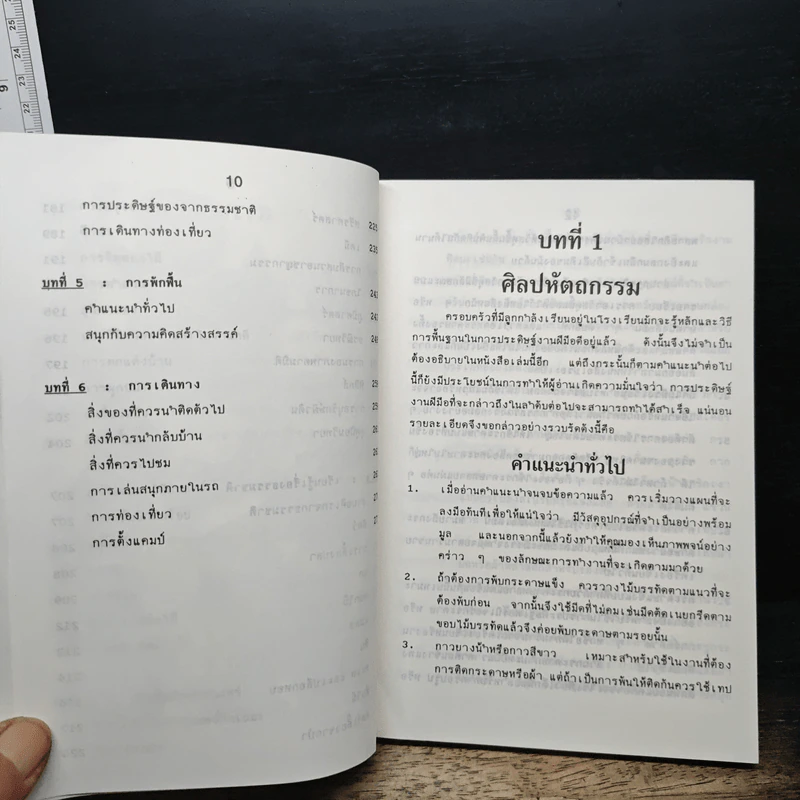 10
การประดิษฐ์ของจากธรรมชาติ
การเดินทางท่องเที่ยว
บทที่ 5 : การพักฟื้น
คำแนะนำทั่วไป
สนุกกับความคิดสร้างสรรค์
บทที่ 6 : การเดินทาง
สิ่งของที่ควรนำติดตัวไป
สิ่งที่ควรนำกลับบ้าน
สิ่งที่ควรไปชม
การเล่นสนุกภายในรถ
การท่องเที่ยว
การตั้งแคมป์
บทที่ 1
ศิลปหัตถกรรม
ครอบครัวที่มีลูกกำลังเรียนอยู่ในโรงเรียนมักจะรู้หลักและวิธี
การพื้นฐานในการประดิษฐ์งานฝีมือดีอยู่แล้ว ดังนั้นจึงไม่จำเป็น
ต้องอธิบายในหนังสือเล่มนี้อีก แต่ถึงกระนั้นก็ตามคำแนะนำต่อไป
นี้ก็ยังมีประโยชน์ในการทำให้ผู้อ่านเกิดความมั่นใจว่า การประดิษฐ์
งานฝีมือที่จะกล่าวถึงในลำดับต่อไปจะสามารถทำได้สำเร็จ แน่นอน
รายละเอียดจึงขอกล่าวอย่างรวบรัดดังนี้คือ
คำแนะนำทั่วไป
1. เมื่ออ่านคำแนะนำจนจบข้อความแล้ว ควรเริ่มวางแผนที่จะ
ลงมือทันทีเพื่อให้แน่ใจว่า มีวัสดุอุปกรณ์ที่จำเป็นอย่างพร้อม
มูล และนอกจากนี้แล้วยังทำให้คุณมองเห็นภาพพจน์อย่าง
คร่าว ๆ ของลักษณะการทำงานที่จะเกิดตามมาด้วย
2. ถ้าต้องการพับกระดาษแข็ง ควรวางไม้บรรทัดตามแนวที่จะ
ต้องพับก่อน จากนั้นจึงใช้มีดที่ไม่คมเช่นมีดตัดเนยกรีดตาม
ขอบไม้บรรทัดแล้วจึงค่อยพับกระดาษตามรอยนั้น
3. กาวยางน้ำหรือกาวสีขาว เหมาะสำหรับใช้ในงานที่ต้อง
การติดกระดาษหรือผ้า แต่ถ้าเป็นการพันให้ติดกันควรใช้เทป